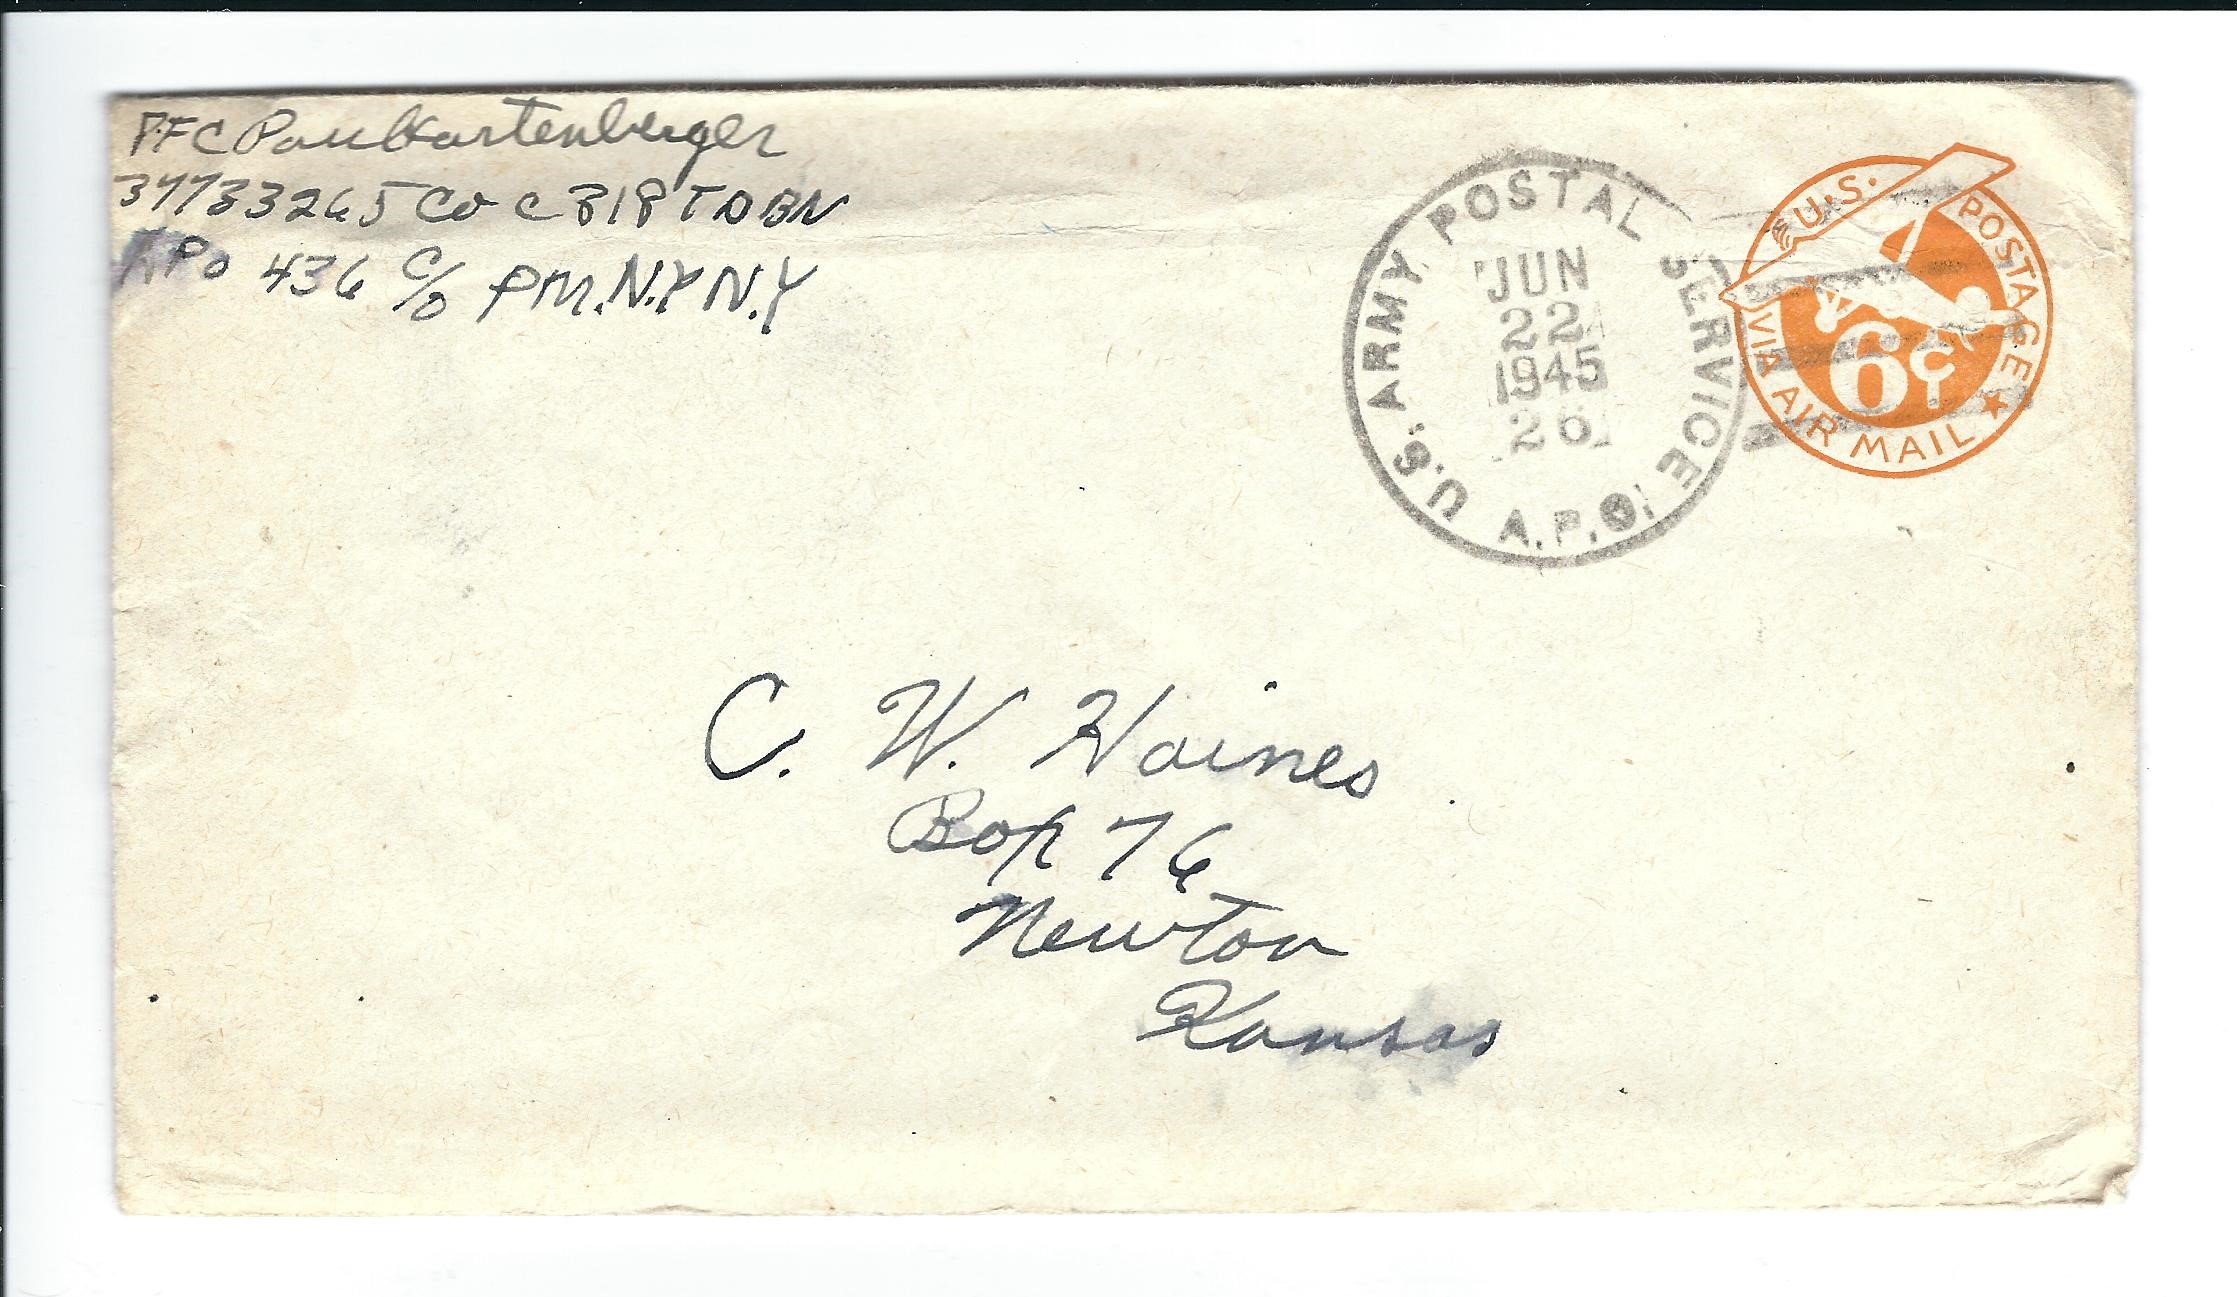 PFC Paul Kartenberger
37733265 Co C 818 TD BN
APO 436 c/o PM. N.Y N.Y
U.S. ARMY POSTAL SERVICE
JUN
22
1945
A.P.O.
U.S. POSTAGE
6¢
VIA AIR MAIL
C. W. Haines
Box 76
Newton
Kansas